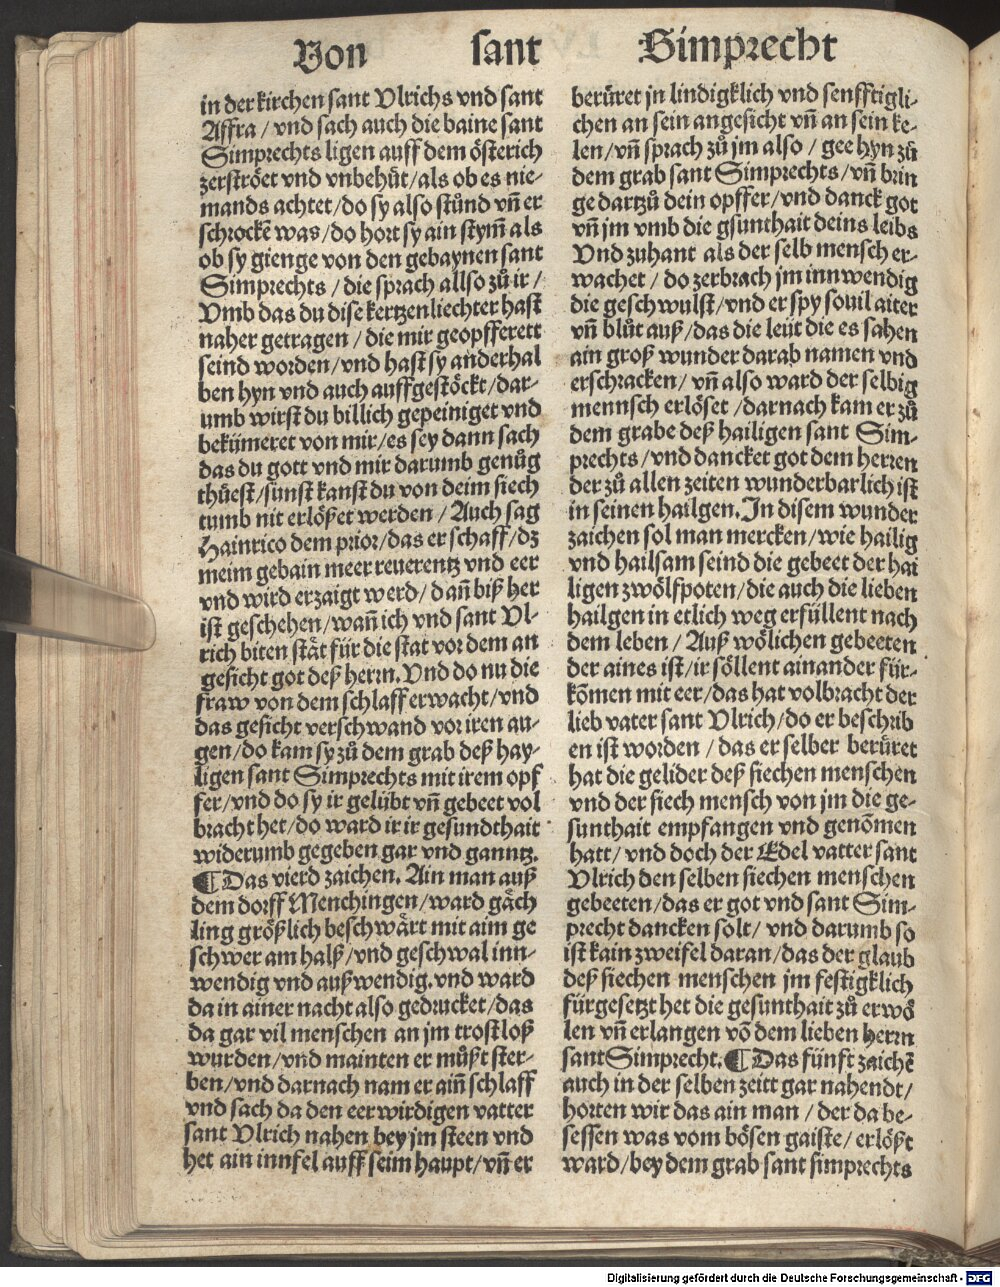 Von sant Simprecht
in der kirchen sant Vlrichs vnd sant
Affra / vnd sach auch die baine sant
Simprechts ligen auff dem österich
zerströet vnd vnbehüt / als ob es nie-
mands achtet / do sy also stůnd vñ er
schrockẽ was / do hort sy ain stym̃ als
ob sy gienge von den gebaynen sant
Simprechts / die sprach allso zů ir /
Vmb das du dise kertzenliechter hast
naher getragen / die mir geopfferett
seind worden / vnd hast sy anderhal
ben hyn vnd auch auffgestöckt / dar-
umb wirst du billich gepeiniget vnd
bekümeret von mir / es sey dann sach
das du gott vnd mir darumb genůg
thüest / sunst kanst du von deim siech
tumb nit erlößet werden / Auch sag
Hainrico dem prior / das er schaff / dz
meim gebain meer reuerentz vnd eer
vnd wird erzaigt werd / dañ biß her
ist geschehen / wañ ich vnd sant Vl-
rich biten stät für die stat vor dem an
gesicht got deß herrn. Vnd do nu die
fraw von dem schlaff erwacht / vnd
das gesicht verschwand vor iren au-
gen / do kam sy zů dem grab deß hay-
ligen sant Simprechts mit irem opf
fer / vnd do sy ir gelübt vñ gebeet vol
bracht het / do ward ir ir gesundthait
widerumb gegeben gar vnd ganntz.
¶ Das vierd zaichen. Ain man auß
dem dorff Menchingen / ward gäch
ling größlich beschwärt mit aim ge
schwer am halß / vnd geschwal inn-
wendig vnd außwendig. vnd ward
da in ainer nacht also gedrucket / das
da gar vil menschen an jm trostloß
wurden / vnd mainten er můßt ster-
ben / vnd darnach nam er aiñ schlaff
vnd sach da den eerwirdigen vatter
sant Vlrich nahen bey jm steen vnd
het ain innfel auff seim haupt / vñ er
berüret jn lindigklich vnd sensftigli-
chen an sein angesicht vñ an sein ke-
len / vñ sprach zů jm also / gee hyn zů
dem grab sant Simprechts / vñ brin
ge dartzů dein opffer / vnd danck got
vñ jm vmb die gsunthait deins leibs
Vnd zuhant als der selb mensch er-
wachet / do zerbrach jm innwendig
die geschwulst / vnd er spy souil aiter
vñ blůt auß / das die leüt die es sahen
ain groß wunder darab namen vnd
erschracken / vñ also ward der selbig
mennsch erlöset / darnach kam er zů
dem grabe deß hailigen sant Sim-
prechts / vnd dancket got dem herren
der zů allen zeiten wunderbarlich ist
in seinen hailgen. In disem wunder
zaichen sol man mercken / wie hailig
vnd hailsam seind die gebeet der hai
ligen zwölfpoten / die auch die lieben
hailgen in etlich weg erfüllent nach
dem leben / Auß wölichen gebeeten
der aines ist / ir söllent ainander für-
kõmen mit eer / das hat volbracht der
lieb vater sant Vlrich / do er beschrib
en ist worden / das er selber berüret
hat die gelider deß siechen menschen
vnd der siech mensch von jm die ge-
sunthait empfangen vnd genõmen
hatt / vnd doch der Edel vatter sant
Vlrich den selben siechen menschen
gebeeten / das er got vnd sant Sim-
precht dancken solt / vnd darumb so
ist kain zweifel daran / das der glaub
deß siechen menschen jm festigklich
fürgesetzt het die gesunthait zů erwö
len vñ erlangen võ dem lieben herrn
sant Simprecht. ¶ Das fünft zaichẽ
auch in der selben zeitt gar nahendt /
horten wir das ain man / der da be-
sessen was vom bösen gaiste / erlößt
ward / bey dem grab sant simprechts
Digitalisierung gefördert durch die Deutsche Forschungsgemeinschaft - DFG